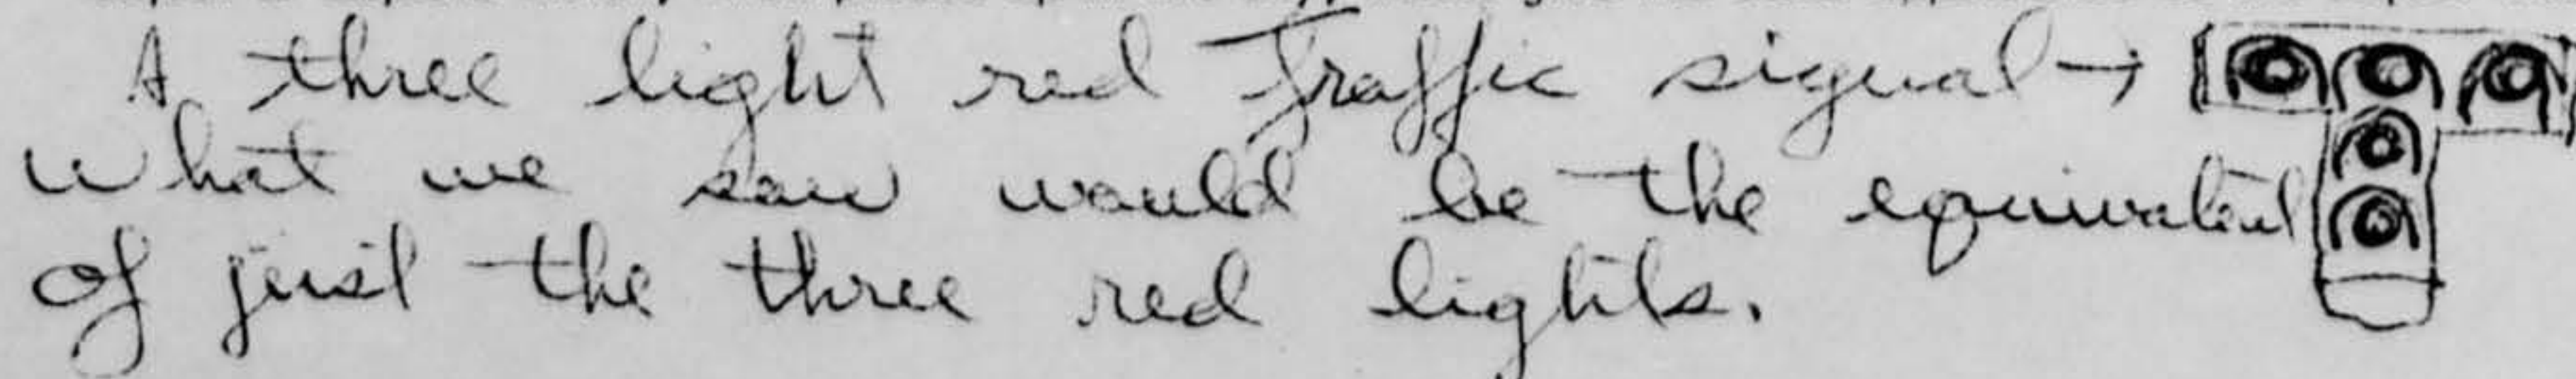 A three light red Traffic signal →
what we saw would be the equivalent
of just the three red lights.